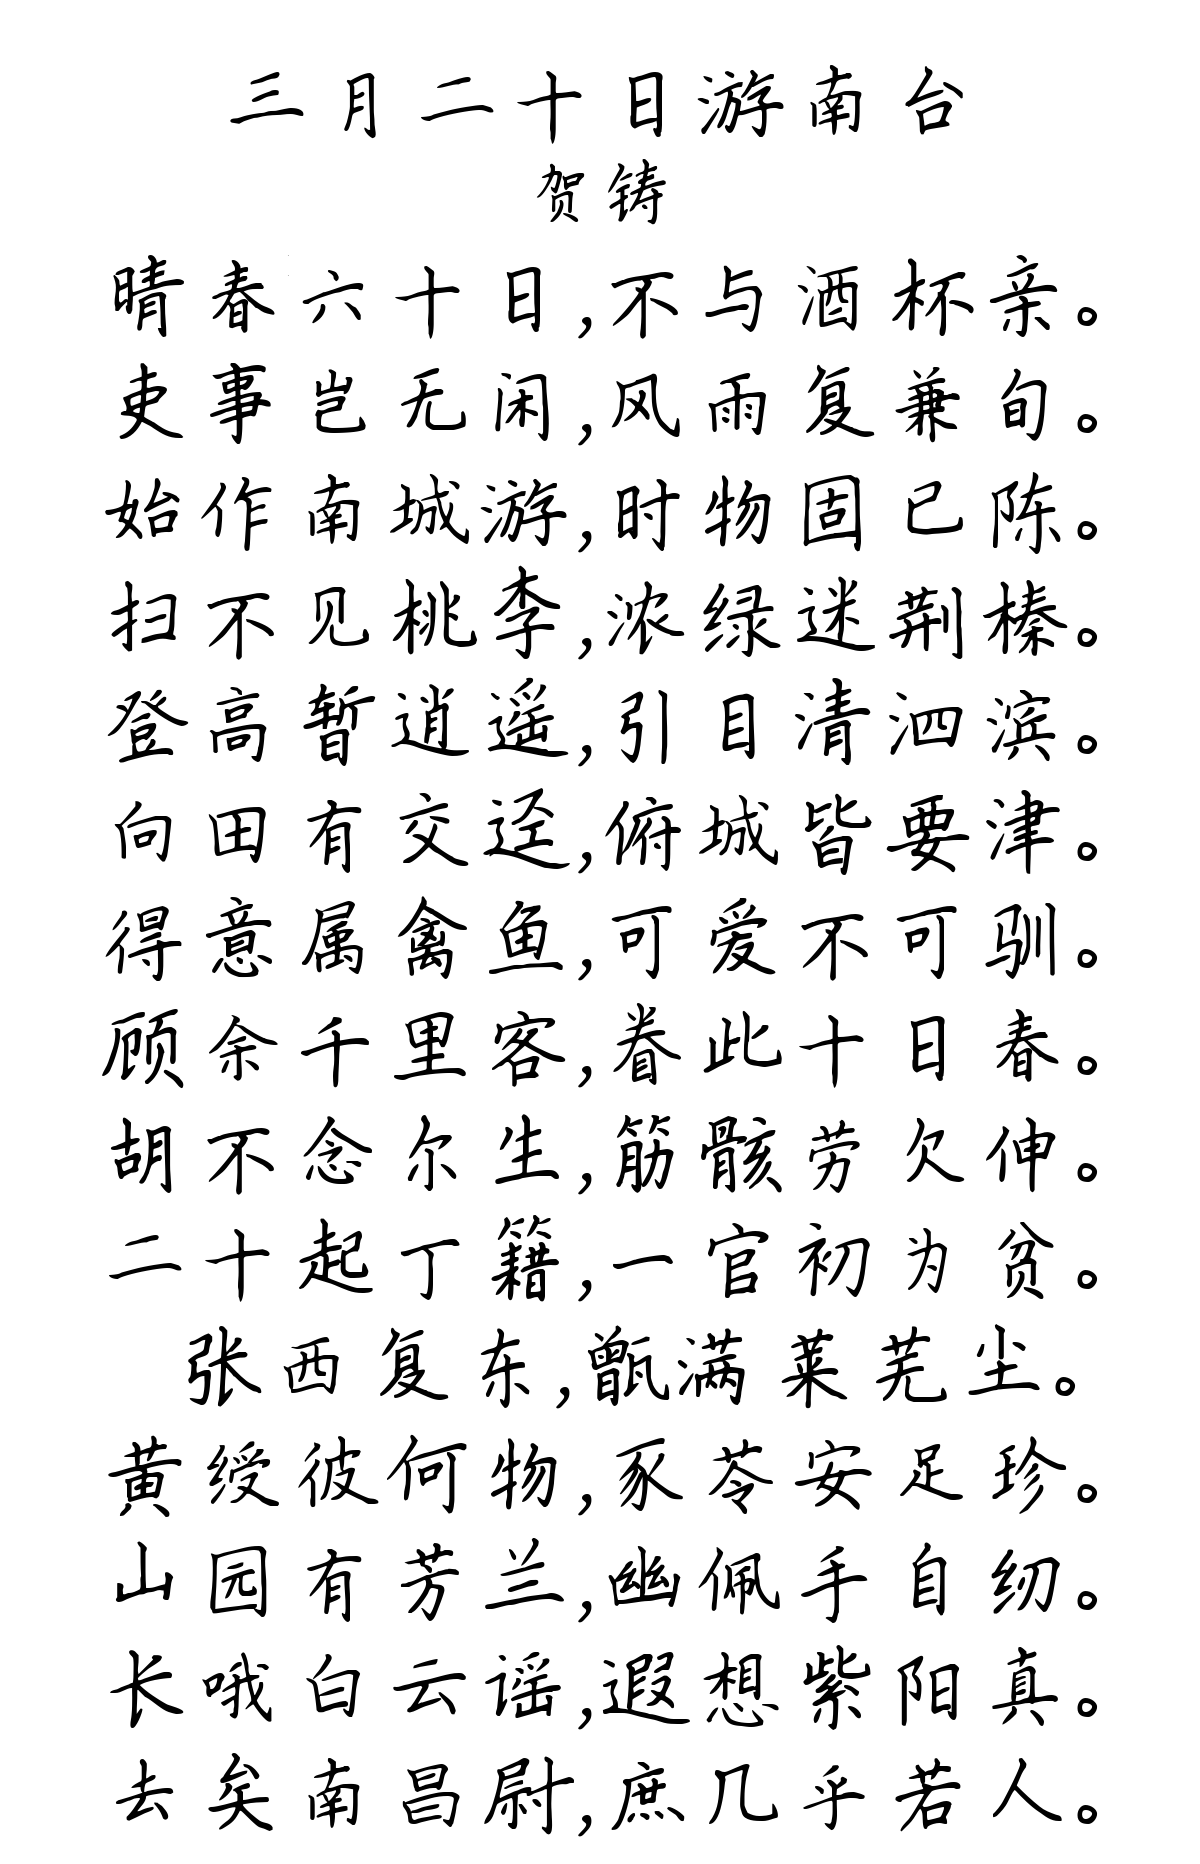 三月二十日游南台
贺铸
晴春六十日,不与酒杯亲。
吏事岂无闲,风雨复兼旬。
始作南城游,时物固已陈。
扫不见桃李,浓绿迷荆榛。
登高暂逍遥,引目清泗滨。
向田有交迳,俯城皆要津。
得意属禽鱼,可爱不可驯。
顾余千里客,眷此十日春。
胡不念尔生,筋骸劳欠伸。
二十起丁籍,一官初为贫。
张西复东,甑满莱芜尘。
黄绶彼何物,豕苓安足珍。
山园有芳兰,幽佩手自纫。
长哦白云谣,遐想紫阳真。
去矣南昌尉,庶几乎若人。